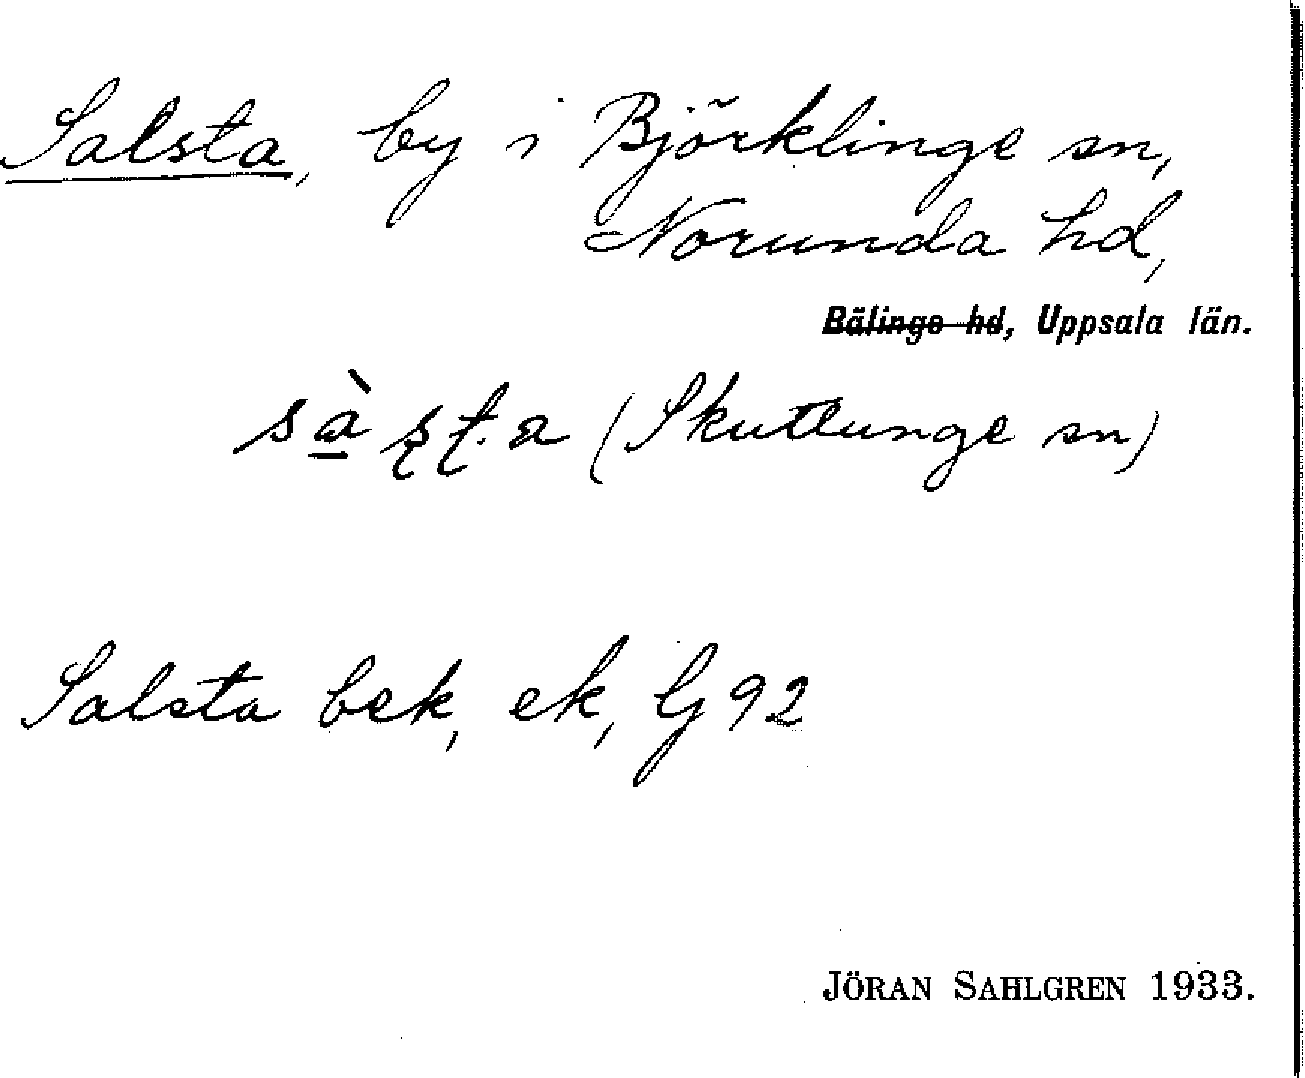 Salsta, by i Björklinge sn,
Norunda hd,
Bälinge hd, Uppsala län.
sà̱ʂʈ.a (Skuttunge sn)
Salsta bek, ek, lj 92
JÖRAN SAHLGREN 1933.